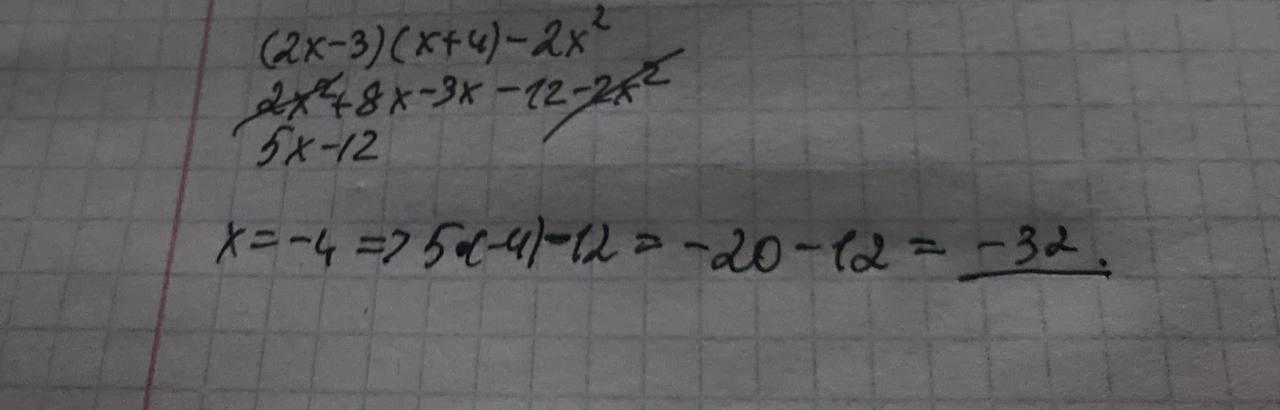 (2x-3)(x+4)-2x²
2x²+8x-3x-12-2x²
5x-12
x=-4 => 5(-4)-12 = -20-12 = -32.